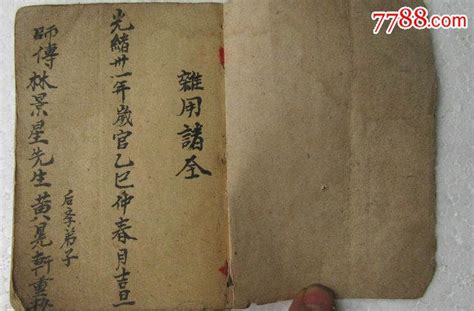 7788.com
雜用諸全
光緒卅一年歲官乙巳仲春月吉旦
后斈弟子
師傳林景星先生黃晃軒重抄